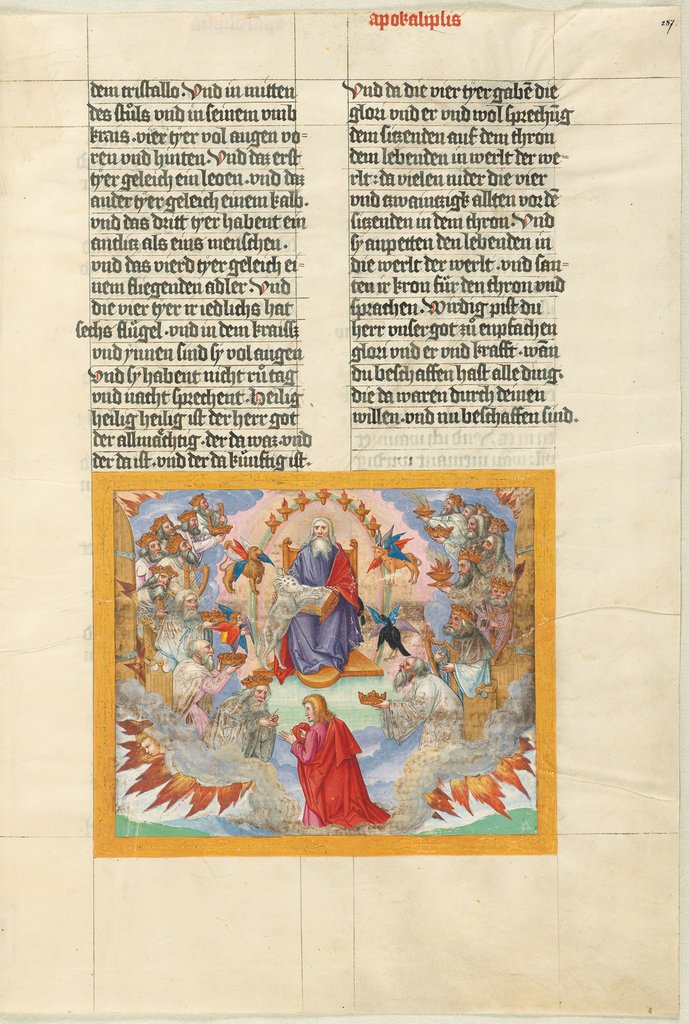 apokaliplis
287.
dem cristallo. Vnd in mitten
des stůls vnd in seinem vmb
krais. vier tyer vol augen vo=
ren vnd hinten. Vnd daz erst
tyer geleich ein leoen. vnd daz
ander tyer geleich einem kalb.
vnd das dritt tyer habent ein
andlitz als eins menschen.
vnd das vierd tyer geleich ei=
nem fliegenden adler Vnd
die vier tyer ir iedlichs hat
sechs flügel. vnd in dem kraiss
vnd ynnen sind sy vol augen
Vnd sy habent nicht rů tag
vnd nacht sprechent. Heilig
heilig heilig ist der herr got
der allmächtig. der da waz. vnd
der da ist. vnd der da künftig ist.
Vnd da die vier tyer gabē die
glori vnd er vnd wol sprechūg
dem sitzenden auf dem thron
dem lebenden in werlt der we=
rlt: da vielen nider die vier
vnd zwaintzigk allten vor dē
sitzenden in dem thron. Vnd
sy anpetten den lebenden in
die werlt der werlt. vnd san=
ten ir kron für den thron vnd
sprachen. Wirdig pist du
herr vnser got zů enpfachen
glori vnd er vnd krafft. wān
du beschaffen hast alle ding.
die da waren durch deinen
willen. vnd nu beschaffen sind.